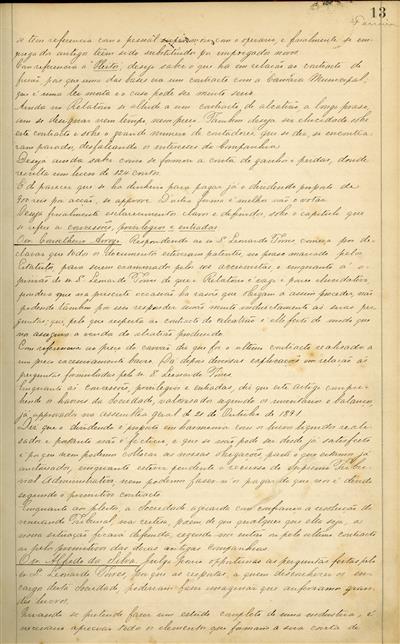 13
se tem referencia com o pessoal superior ou com o operario, e finalmente se em-
pregados antigos teem sido substituidos por empregados novos.
Com referencia á Pleito; deseja saber o que ha em relação ao contracto de
fusão, pois que uma das bases era um contracto com a Camara Municipal,
que é uma lei morta e o caso pode ser muito serio.
Ainda no Relatorio se allude a um contracto de alcatrão a longo praso,
sem se designar nem tempo, nem preço. Tambem deseja ser elucidado sobre
este contracto e sobre o grande numero de contadores que se diz, se encontra-
ram parados, desfalcando os interesses da Companhia.
Deseja ainda saber como se formou a conta de ganhos e perdas, donde
resulta um lucro de 124 contos.
É de parecer que se ha dinheiro para pagar já o dividendo proposto de
reis por acção, se approve. D'outra forma é melhor não o votar.
Deseja finalmente esclarecimentos claros e definidos, sobre o capitulo que
se refere a concessões, privilegios e entradas.
O Sr. Carvalho Respondendo ao Sr. Leonardo Torres começa por de-
clarar que todos os documentos estiveram patentes, no praso marcado pelos
Estatutos, para serem examinados pelos srs. accionistas; e emquanto á o-
pinião do Sr. Leonardo Torres de que o Relatorio é vago e pouco elucidativo,
pondera que na presente occasião ha rasões que obrigam a assim proceder, não
podendo tambem por isso responder senão muito indirectamente ás suas per-
guntas; que pelo que respeita ao contracto do alcatrão é elle feito de modo que
nos assegura a venda do alcatrão produzido.
Com referencia ao preço do carvão diz que foi o ultimo contracto realisado a
um preço excessivamente baixo. Dá depois diversas explicações em relação ás
perguntas formuladas pelo Sr. Leonardo Torres.
Emquanto ás Concessões, privilegios e entradas, diz que este artigo compre-
hende os haveres da Sociedade, valorisados segundo os inventarios e balanços
já approvados na assemblea geral de 21 de Outubro de 1891.
Diz que o dividendo é proposto em harmonia com os lucros liquidos reali-
sados e portanto não é ficticio, e que se não pode ser desde já satisfeito
é porque nem podemos collocar as nossas obrigações, posto que estamos já
auctorisados, emquanto estiver pendente o recurso do Supremo Tribu-
nal Administrativo, nem podemos fazer-nos pagar do que nos é devido
segundo o primitivo contracto.
Emquanto ao pleito, a Sociedade aguarda com confiança a resolução do
venerando Tribunal, na certeza, porem de que qualquer que ella seja, a
nossa situação ficará definida, regendo-nos então ou pelo ultimo contracto
ou pelos primitivos das duas antigas Companhias.
O Sr. Alfredo da Silva, julga pouco opportunas as perguntas feitas pelo
Sr. Leonardo Torres, porque as respostas, a quem desconhecer os en-
cargos desta Sociedade, poderiam fazer imaginar que auferimos gran-
des lucros.
Quando se pretende fazer um estudo completo de uma industria, é
necessario apreciar todos os elementos que formam a sua conta de